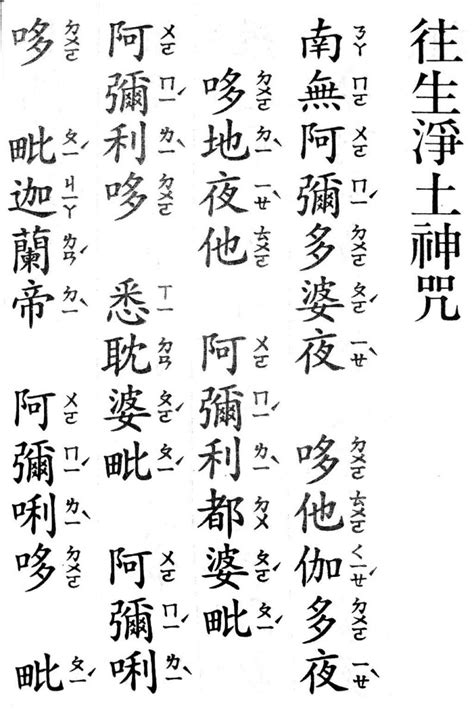 往生淨土神咒
南無阿彌多婆夜　哆他伽多夜
哆地夜他　阿彌利都婆毗
阿彌利哆　悉耽婆毗　阿彌唎
哆　毗迦蘭帝　阿彌唎哆　毗